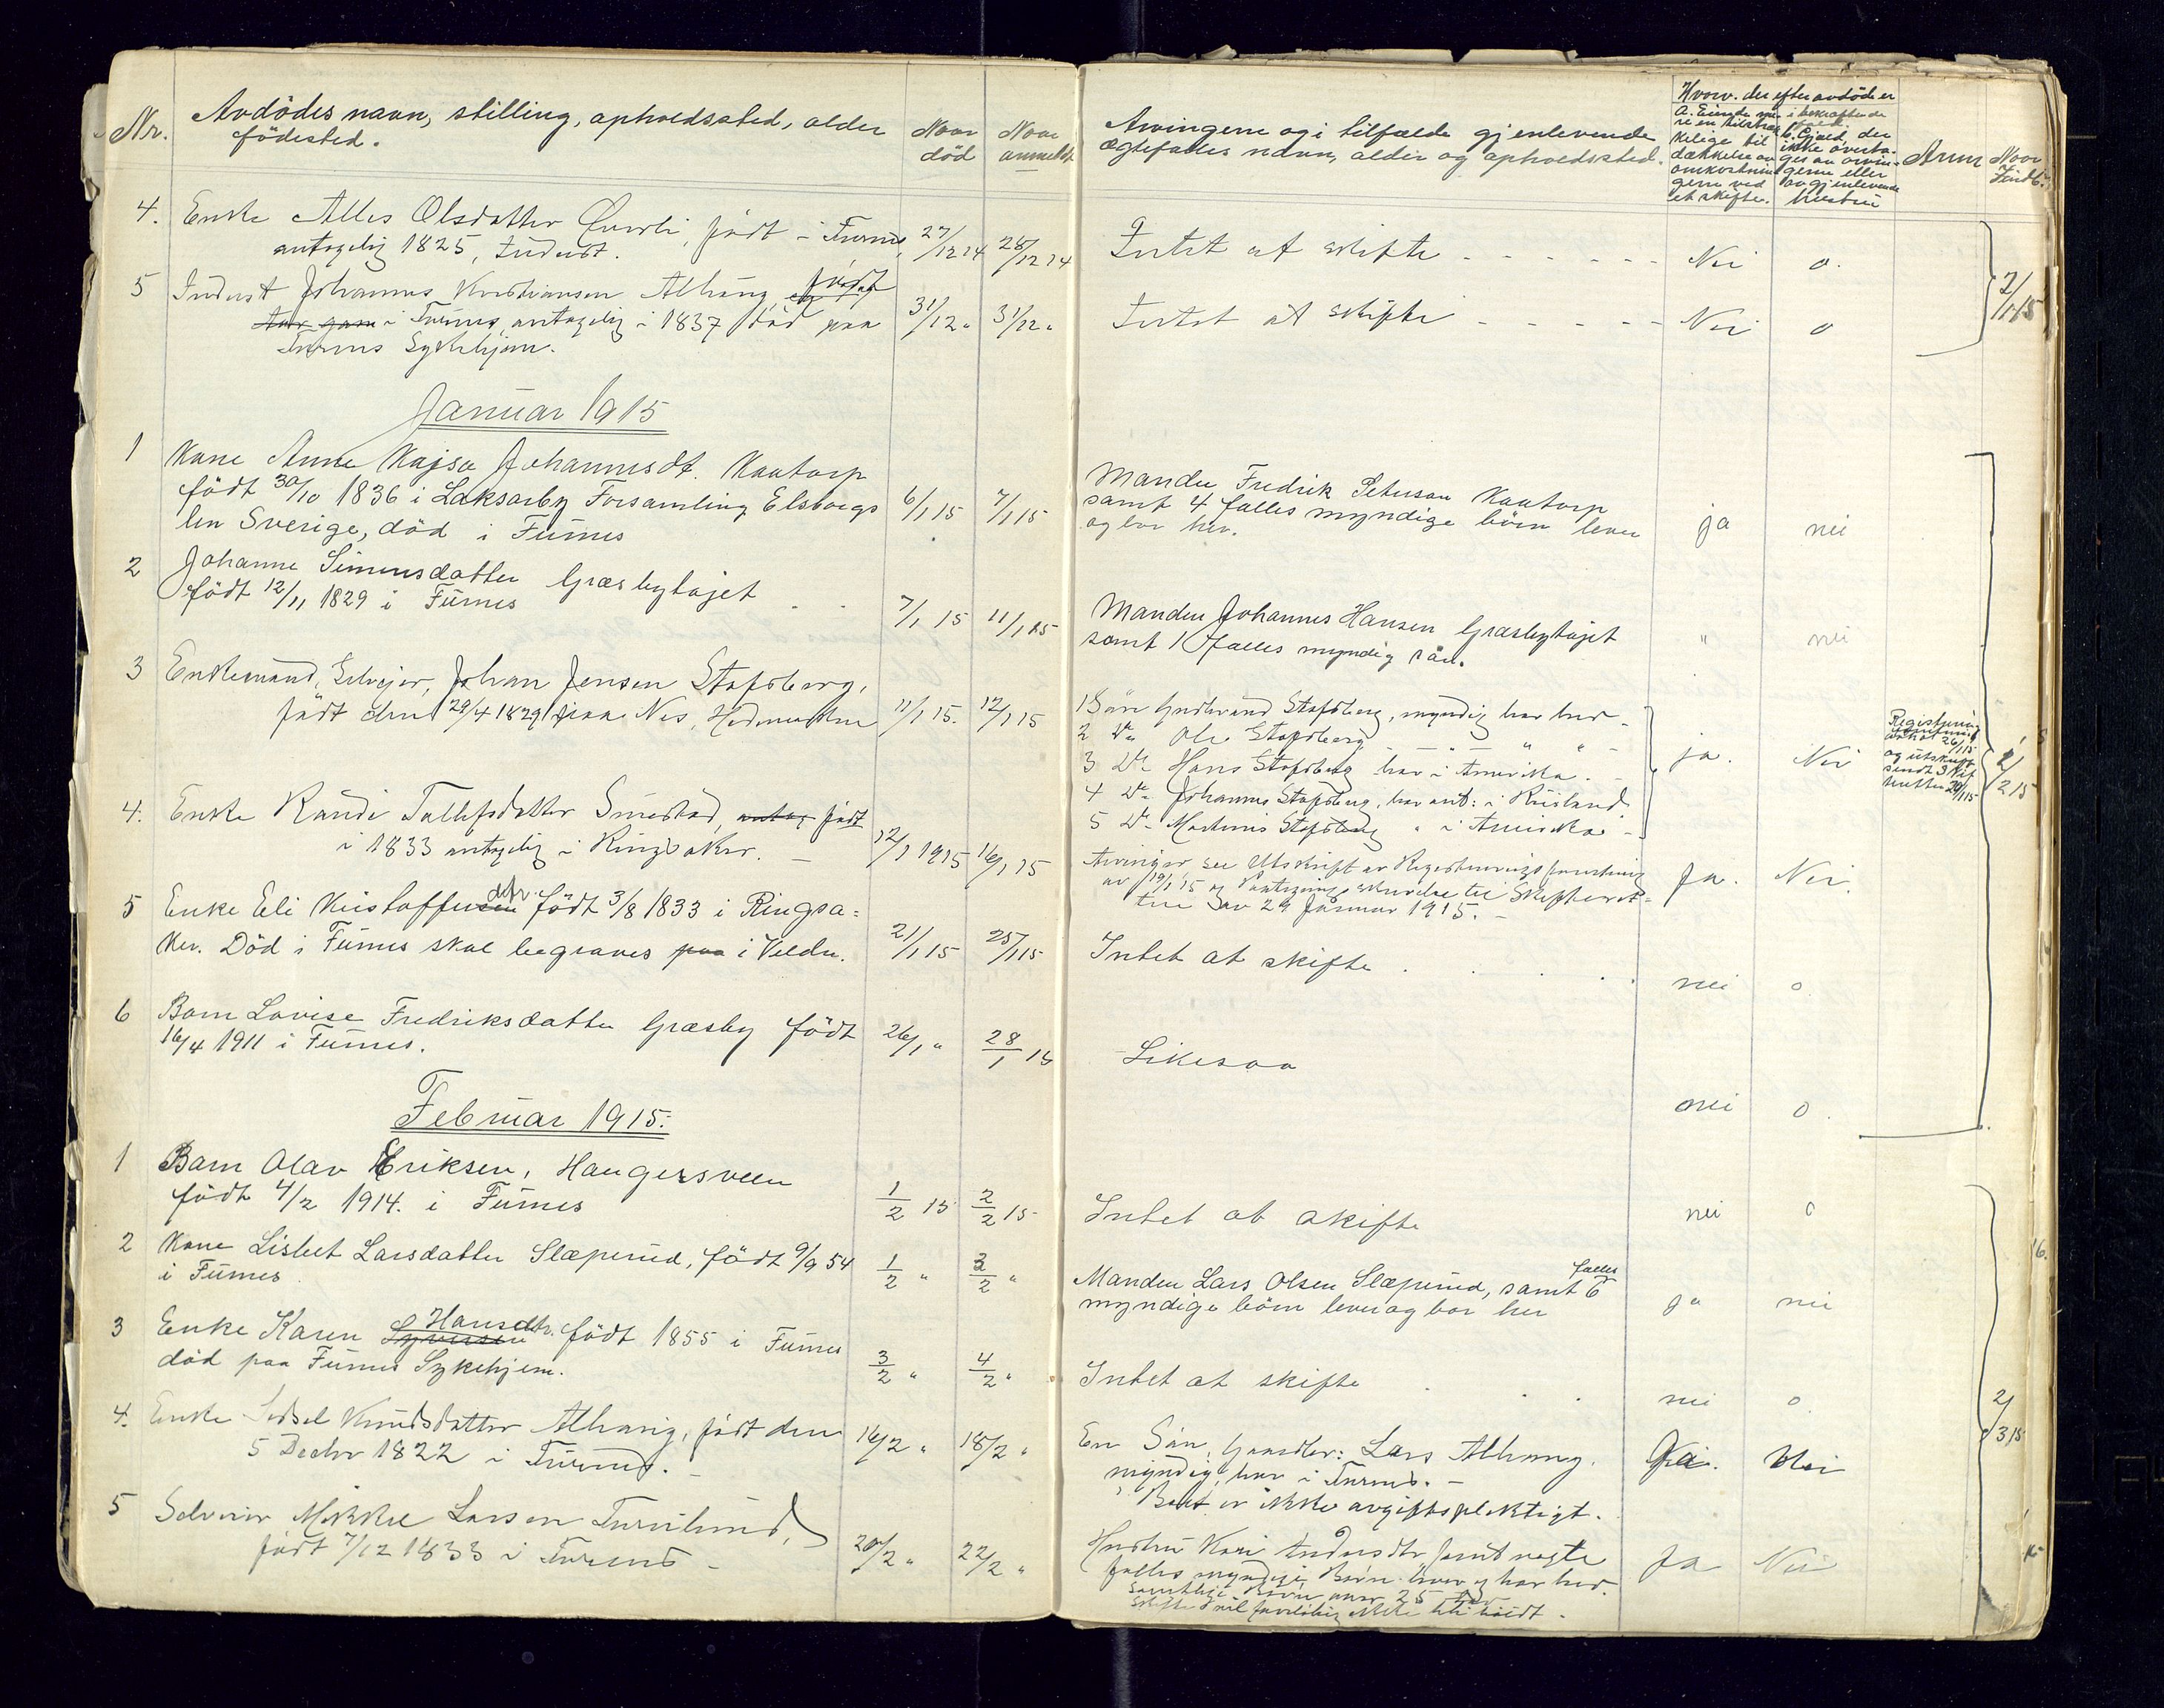 Nr.
Avdödes navn, stilling, opholdssted, alder
födested.
Naar
död
Naar
anmeldt
Arvingerne og i tilfælde gjenlevende
ægtefælles navn, alder og opholdssted.
Hvorv. der efter avdöde er
Anm
Naar
4. Enke Olsdatter født i Furnes, 27/12 14 28/12 14
antagelig 1825, Inderst.
Intet at skifte - - - - - - Nei o.
5 Inderst Johannes Kristiansen Alhaug, född
i Furnes, antagelig i 1837, död paa 31/12 " 31/12 "
Furnes Sykehjem.
Intet at skifte - - - - - Nei o
2/1 15
Januar 1915
1 Kone Anne Kajsa Johannesdt. Kaatorp
född 30/10 1836 i Laksarby Forsamling Elsborgs 6/1 15 7/1 15
len Sverige, död i Furnes
Manden Fredrik Peterson Kaatorp
samt 4 fælles myndige börn lever ja nei
og bor her.
2 Johanne Simensdatter Græsbyhajet
födt 12/11 1829 i Furnes 7/1 15 11/1 15
Manden Johannes Hansen Græsbyhajet " nei
samt 1 fælles myndig sön.
3 Enkemand, Selveier, Johan Jensen Stafsberg,
født den 29/4 1829 paa Nes, Hedemarken 11/1 15. 12/1 15
1 Søn Gudbrand Stafsberg, myndig bor her -
2 Do Ole Stafsberg - - - " " -
3 Do Hans Stafsberg bor i Amerika. -
4 Do Johannes Stafsberg, bor ant: i Rusland
5 Do Martinus Stafsberg " i Amerika -
ja. Nei
Registrering
26/1 15
og utskrift
sendt Skif
teretten 29/1 15
2/2 15
4. Enke Randi Tollefsdatter Smestad, antag født
i 1833 antagelig i Ringsaker. - 12/1 1915 16/1 15
Arvinger see Utskrift av Registreringsforretning
av 19/1 15 og Paategningsskrivelse til Skifteret-
ten av 29 Januar 1915. -
Ja. Nei.
5 Enke Eli Kristoffersen dtr. födt 3/8 1833 i Ringsa=
ker. Död i Furnes skal begraves paa i Veldre. 21/1 15 25/1 15
Intet at skifte . . . . nei o
6 Barn Lovise Fredriksdatter Græsby födt
16/4 1911 i Furnes. 26/1 " 28/1 15
Likesaa
nei o.
Februar 1915.
1 Barn Olav Eriksen, Haugersveen
födt 4/2 1914. i Furnes 1/2 15 2/2 15
Intet at skifte nei o
2 Kone Lisbet Larsdatter Slæperud, födt 9/9 54 1/2 " 3/2 "
i Furnes
Manden Lars Olsen Slæperud, samt 6 fælles
myndige börn lever og bor her ja nei
3 Enke Karen Syversen Hansdtr. födt 1855 i Furnes
död paa Furnes Sykehjem. 3/2 " 4/2 "
Intet at skifte . . . nei o.
4. Enke Sidsel Knudsdatter Alhaug, født den 16/2 " 18/2 "
5 Decbr 1822 i Furnes. -
En Søn, Gaardbr: Lars Alhaug,
myndig, bor i Furnes. -
Boet er ikke avgiftspliktigt.
Ja. Nei
2/3 15
5 Selveier Mikkel Larsen Furulund,
født 7/12 1833 i Furnes - 20/2 " 22/2 "
Hustru Kari Andersdtr samt
fælles myndige Børn lever og bor her.
Samtlige Børn over 25 Aar
Ja Nei